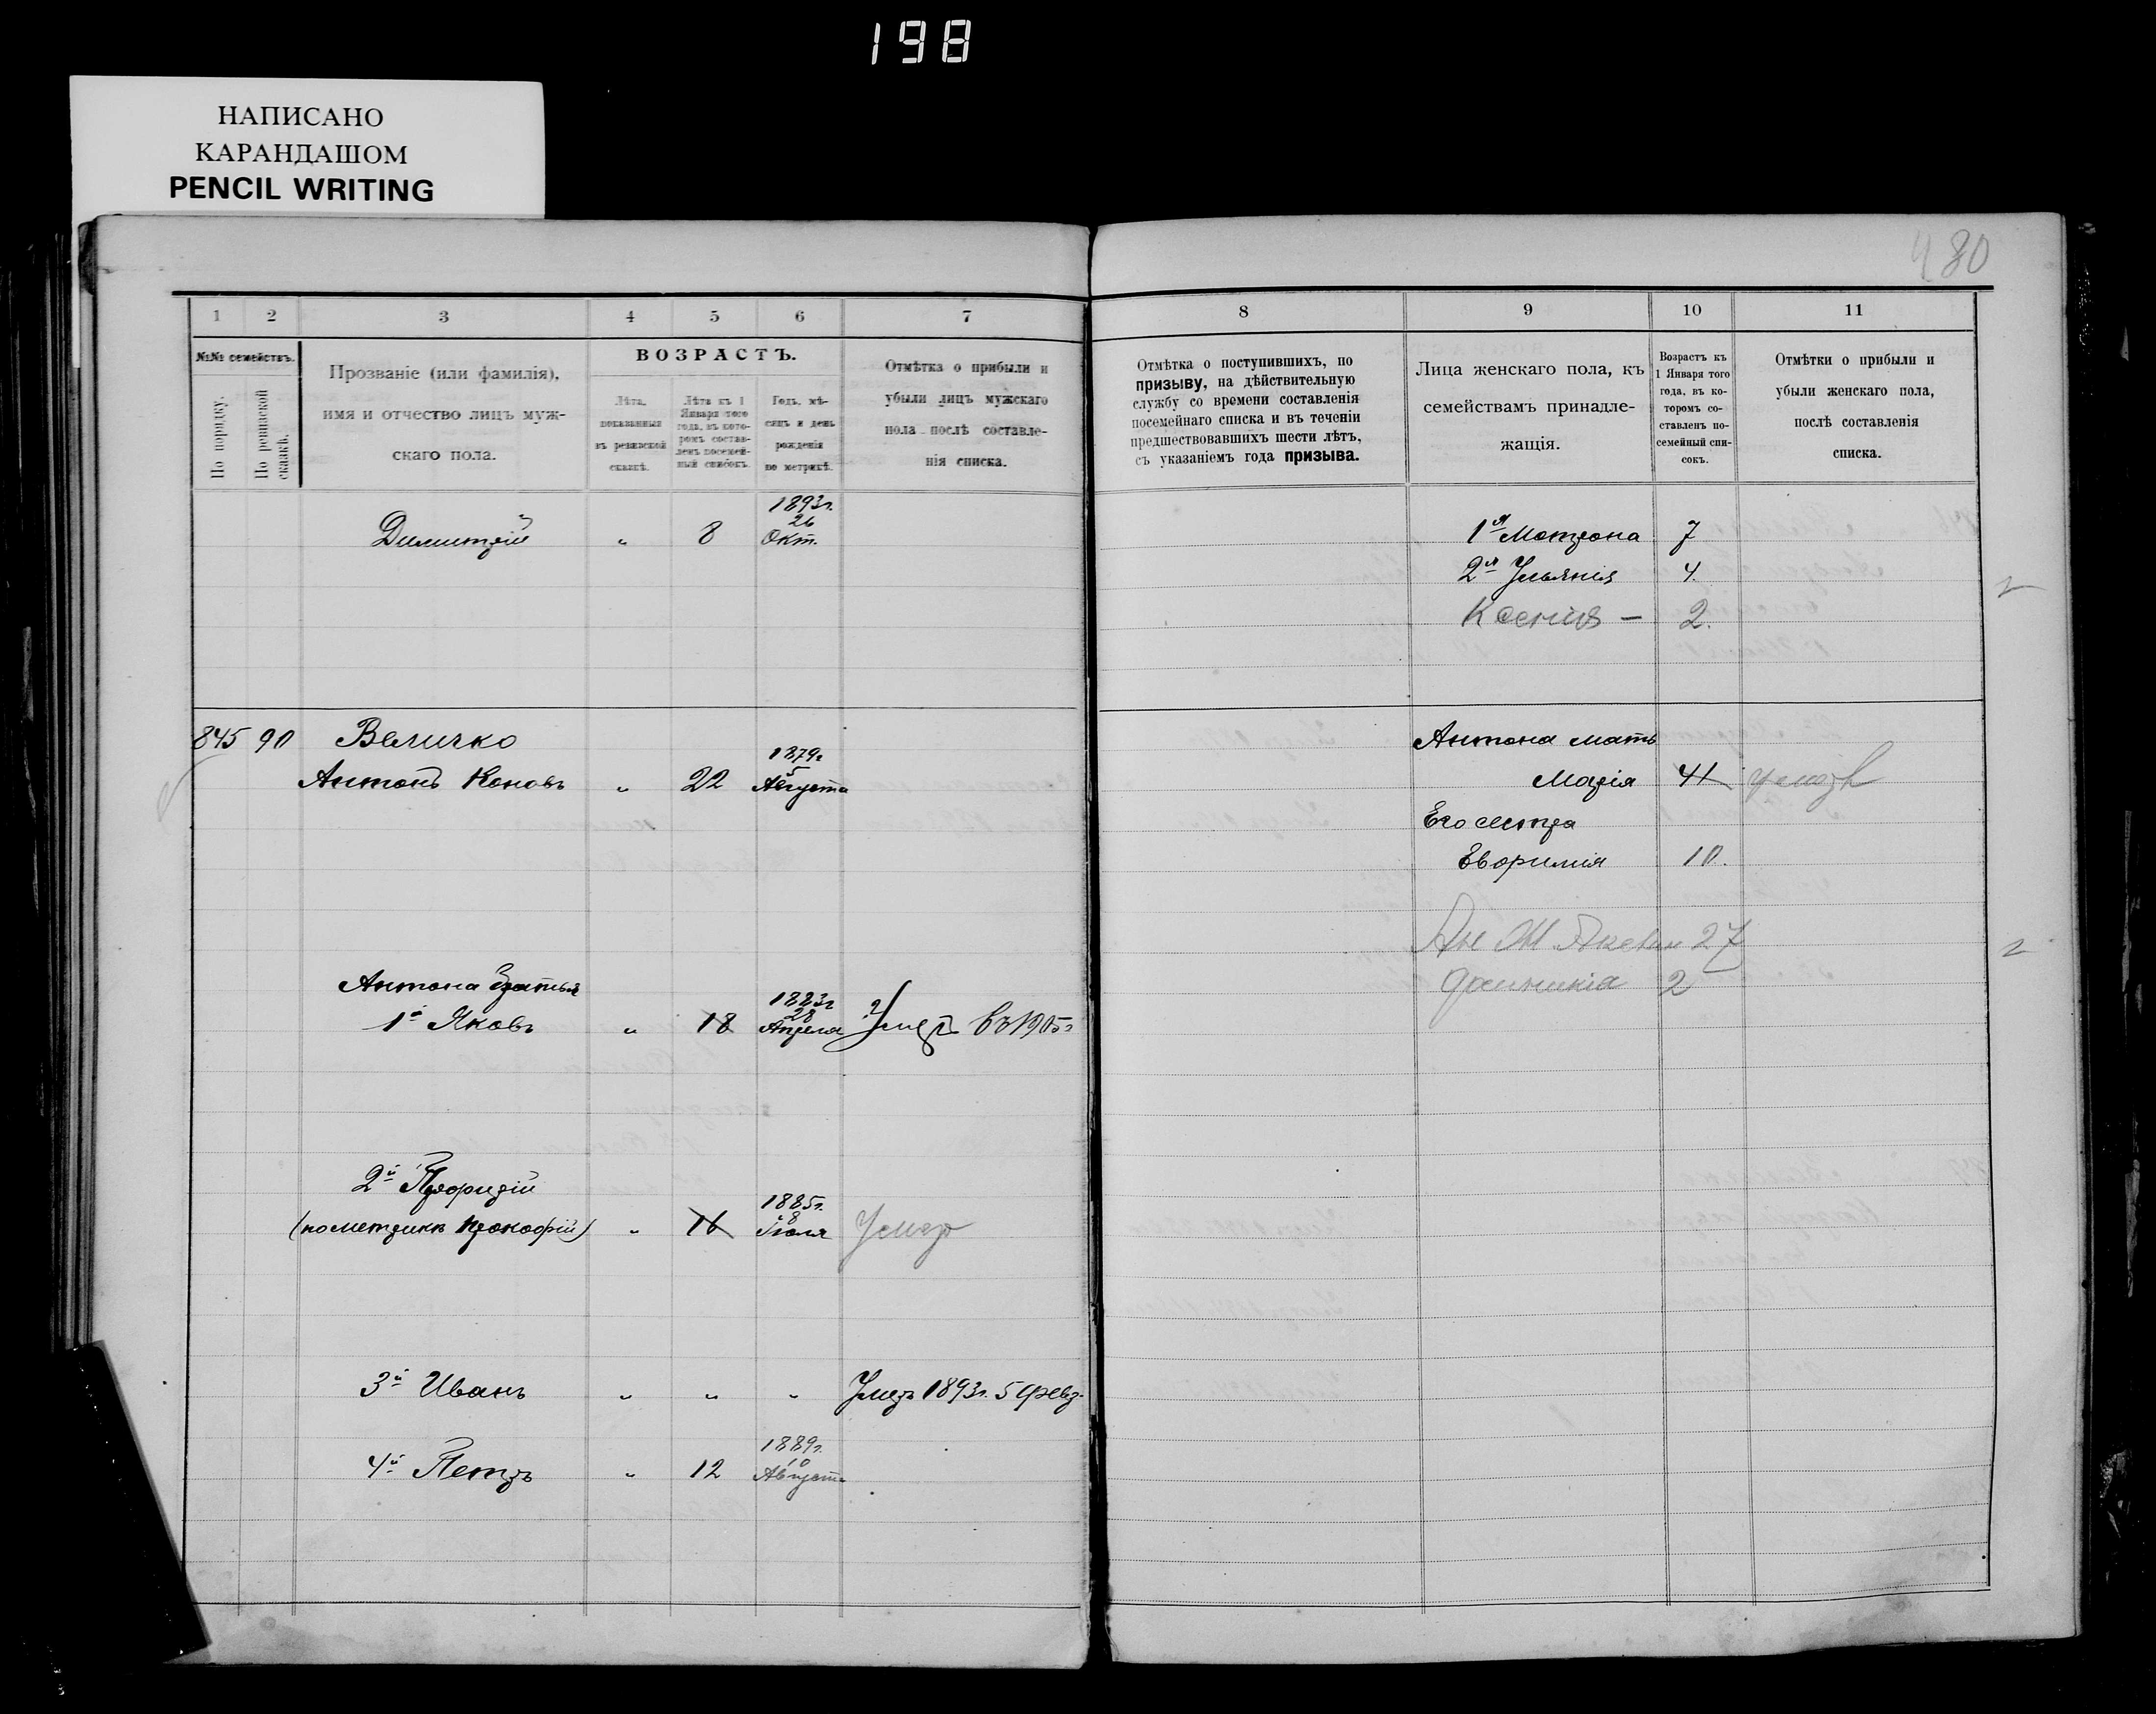 198
НАПИСАНО
КАРАНДАШОМ
PENCIL WRITING
480
1 2 3 4 5 6 7
№№ семействъ.
По порядку.
По ревизской сказкѣ.
Прозваніе (или фамилія),
имя и отчество лицъ муж-
скаго пола.
ВОЗРАСТЪ.
Лѣта,
показанныя
въ ревизской
сказкѣ.
Лѣта къ 1
Января того
года, въ кото-
ромъ состав-
ленъ посемей-
ный списокъ.
Годъ, мѣ-
сяцъ и день
рожденія
по метрикѣ.
Отмѣтка о прибыли и
убыли лицъ мужскаго
пола послѣ составле-
нія списка.
8 9 10 11
Отмѣтка о поступившихъ, по
призыву, на дѣйствительную
службу со времени составленія
посемейнаго списка и въ теченіи
предшествовавшихъ шести лѣтъ,
съ указаніемъ года призыва.
Лица женскаго пола, къ
семействамъ принадле-
жащія.
Возрастъ къ
1 Января того
года, въ ко-
торомъ со-
ставленъ по-
семейный спи-
сокъ.
Отмѣтки о прибыли и
убыли женскаго пола,
послѣ составленія
списка.
1893г.
26
Димитрій " 8 Окт.
1я Мотрона 7
2я Ульянія 4.
Ксенія — 2.
845 90 Величко
1879г
5
Антонъ Коновъ " 22 Августа
Антона мать
Марія 41 умерл
Его сестра
Евфимія 10.
27
2
Антона братья
1883г
28
1й Яковъ " 18 Апреля Умеръ въ 1905г
2й Порфирій
1885г.
8
(по метрикѣ Прокофій) " 16 Іюля Умер
3й Иванъ " " " Умеръ 1893г. 5 февр.
1889г.
10
4й Петръ " 12 Августа